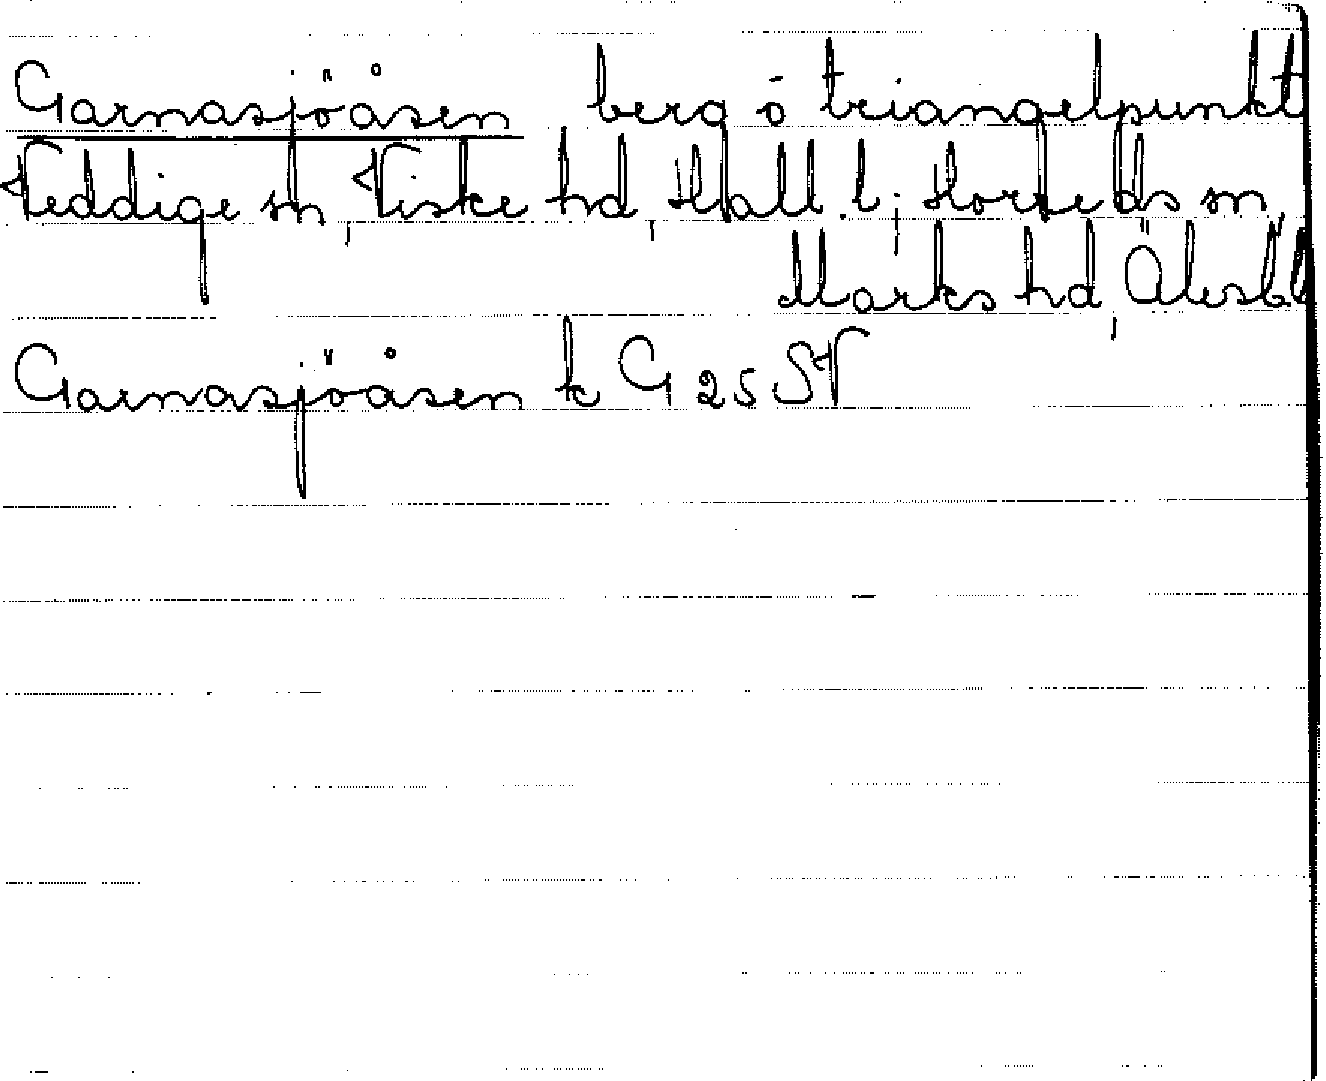 Garnasjöåsen berg o triangelpunkt
Veddige sn, Viske hd, Hall. l; Horreds sn,
Marks hd, Älvsb.l.
Garnasjöåsen k G 25 SV